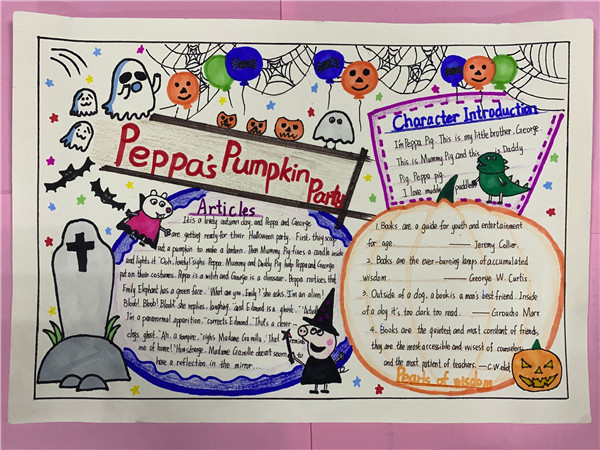 Peppa's Pumpkin Party
Character Introduction
I'm Peppa Pig. This is my little brother, George.
This is Mummy Pig and this is Daddy
Pig. Peppa pig.
I love muddy puddles
Articles
It is a lovely autumn day, and Peppa and George
are getting ready for their Halloween party. First, they scoop
out a pumpkin to make a lantern. Then Mummy Pig fixes a candle inside
and lights it. "Ooh, lovely!" sighs Peppa. Mummy and Daddy Pig help Peppa and George
put on their costumes. Peppa is a witch and George is a dinosaur. Peppa notices that
Emily Elephant has a green face. "What are you, Emily?" she asks. I'm an alien!
Bloob! Bloob! Bloob!" she replies, laughing. "and Edmund is a ghost." "Actually
I'm a paranormal apparition." corrects Edmund. "That's a clever
clogs ghost." "Ah, a vampire." sighs Madame Gazelle. "That reminds
me of home!" How strange. Madame Gazelle doesn't seem to
have a reflection in the mirror....
1. Books are a guide for youth and entertainment
for age. —— Jeremy Collier.
2. Books are the ever-burning lamps of accumulated
wisdom. —— George W. Curtis.
3. Outside of a dog, a book is a man's best friend. Inside
of a dog it's too dark too read. —— Groucho Marx
4. Books are the quietest and most constant of friends,
they are the most accessible and wisest of counselors
and the most patient of teachers. —C.W.eliot
Pearls of wisdom